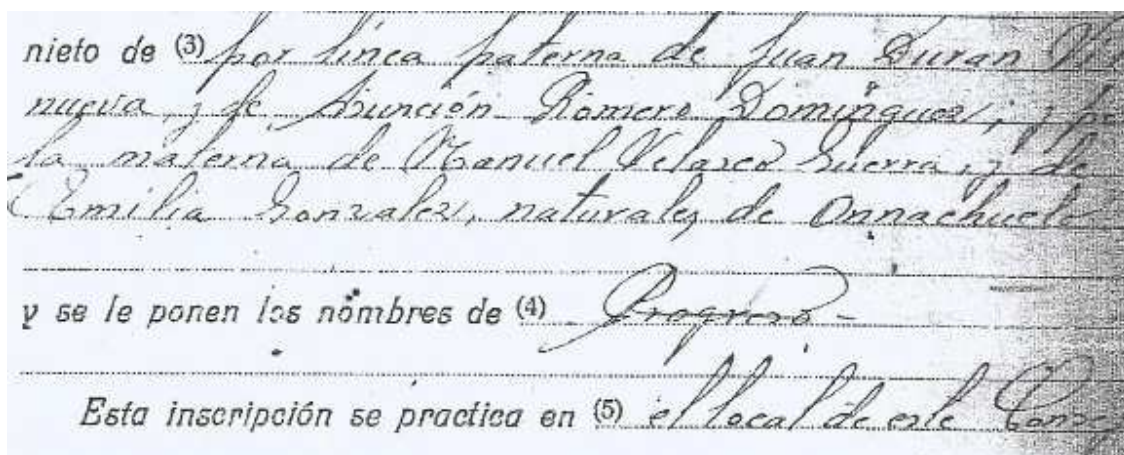 nieto de (3) por línea paterna de Juan Duran Vi
nueva, y de Asunción Romero Dominguez, y po
la materna de Manuel Velasco Guerra, y de
Emilia Gonzalez, naturales de
y se le ponen los nombres de (4) Progreso -
Esta inscripción se practica en (5) el local de este Conse